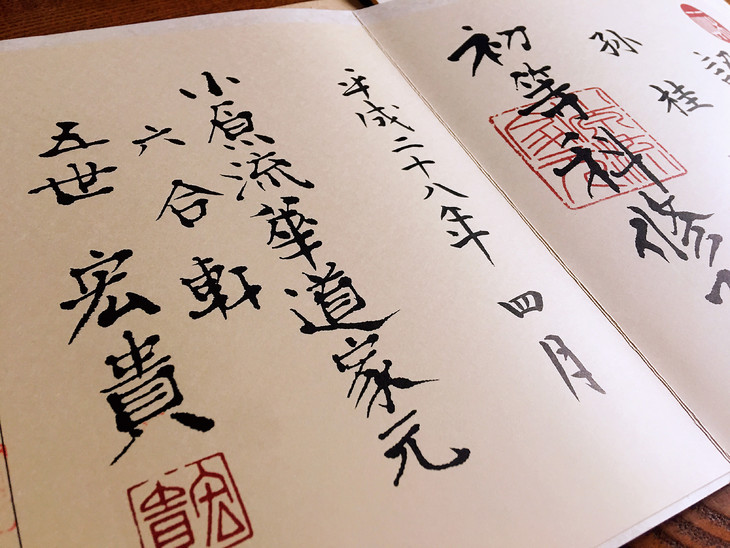 認
孫 桂
初等科修了
平成二十八年 四月
小原流華道家元
六合軒
五世 宏貴
宏貴